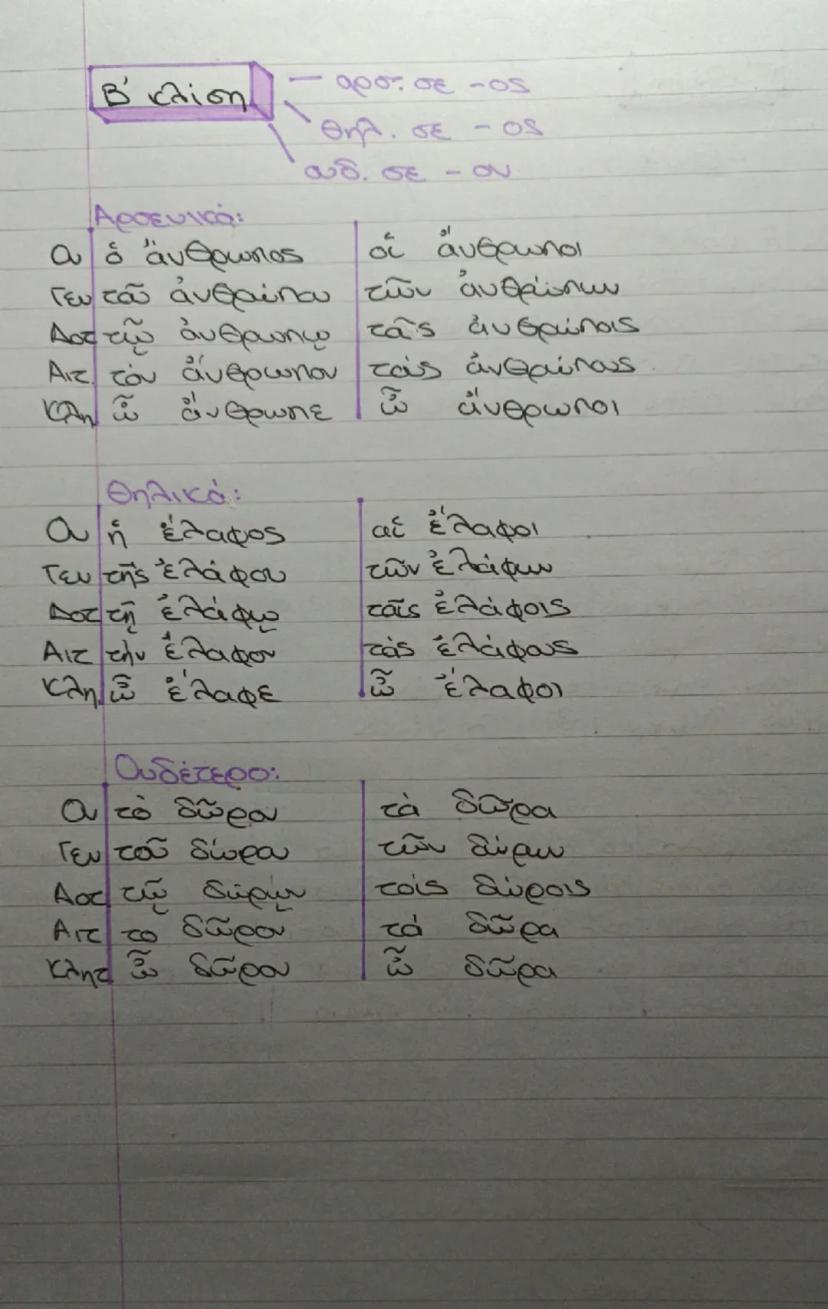 Β' κλίση
— αρσ. σε -ος
θηλ. σε -ος
ουδ. σε -ον
Αρσενικά:
Ον ὁ ἄνθρωπος οἱ ἄνθρωποι
Γεν τοῦ ἀνθρώπου τῶν ἀνθρώπων
Δοτ τῷ ἀνθρωπῳ τοῖς ἀνθρώποις
Αιτ. τὸν ἄνθρωπον τοὺς ἀνθρώπους
Κλη ὦ ἄνθρωπε ὦ ἄνθρωποι
Θηλικά:
Ον ἡ ἔλαφος αἱ ἔλαφοι
Γεν τῆς ἐλάφου τῶν ἐλάφων
Δοτ τῇ ἐλάφῳ ταῖς ἐλάφοις
Αιτ τὴν ἔλαφον τὰς ἐλάφους
Κλη ὦ ἔλαφε ὦ ἔλαφοι
Ουδέτερο:
Ον τὸ δῶρον τὰ δῶρα
Γεν τοῦ δώρου τῶν δώρων
Δοτ τῷ δώρῳ τοίς δώροις
Αιτ το δῶρον τά δῶρα
Κλητ ὦ δῶρον ὦ δῶρα